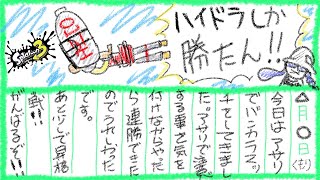 ハイドラしか
勝たん!!
△月○日(も)
今日はアサリ
でバンカラマッ
チをしてきまし
た。アサリで注意
する事に気を
付けながらやった
ら連勝できた
のでうれしかった
です。
あと少しで昇格
戦!!
がんばるぞ!!!